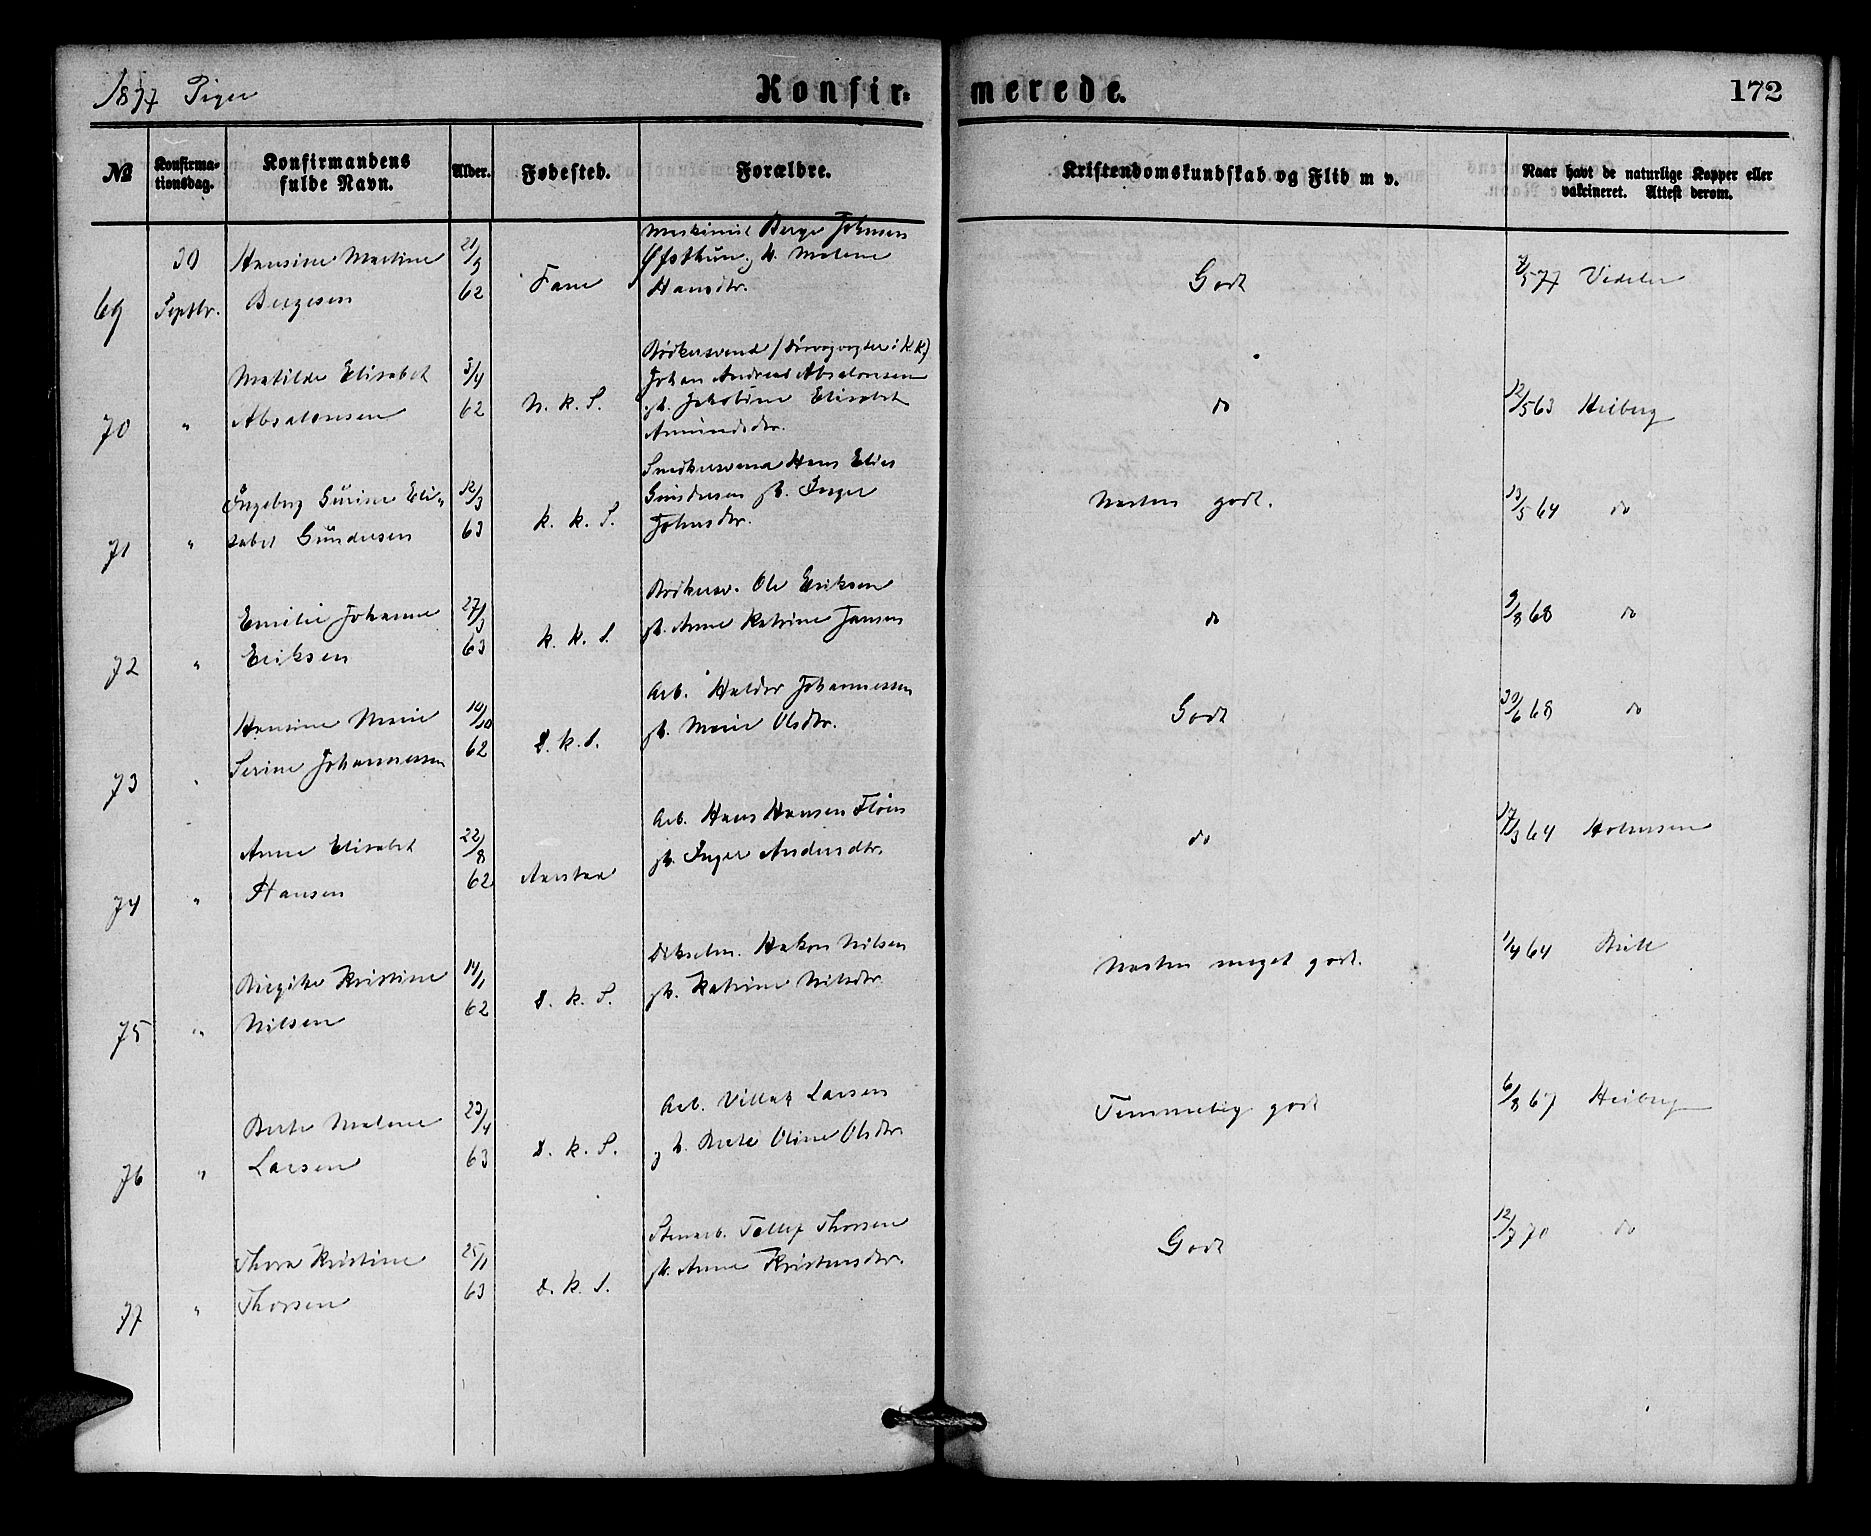 1877 Piger
Konfirmerede.
172
№
Konfirma-
tionsdag.
Konfirmandens
fulde Navn.
Alder.
Fødested.
Forældre.
Kristendomskundskab og Flid m v.
Naar havt de naturlige Kopper eller
vakcineret. Attest derom.
69
30
Septbr.
Hansine Martine
Bergesen
21/9
62
Fane
Maskinist Berge Johnsen
Øfsthun g. M. Malene
Hansdtr.
Godt
7/5 77 Vedeler
70
"
Matilde Elisabet
Absalonsen
3/4
62
N. k. S.
Bødkersvend
Johan Andreas Absalonsen
gt. Jakobine Elisabet
Amundsdtr.
do
12/5 63 Heiberg
71
"
Ingeborg Gurine Eli-
sabet Gundersen
12/3
63
K. k. S.
Snedkersvend Hans Elias
Gundersen gt. Inger
Johnsdtr.
Næsten godt.
13/5 64 do
72
"
Emilie Johanne
Eriksen
27/3
63
K. k. S.
Bødkersv. Ole Eriksen
gt. Anne Katrine Jansen
do
9/8 68 do
73
"
Hansine Marie
Serine Johannessen
14/10
62
D. k. S.
Arb. Haldor Johannessen
gt. Marie Olsdtr.
Godt
30/6 68 do
74
"
Anne Elisabet
Hansen
22/8
62
Aarstad
Arb. Hans Hansen Fløen
gt. Inger Andersdtr.
do
17/3 64 Holmsen
75
"
Birgitte Kristine
Nilsen
14/1
62
D. k. S.
Hakon Nilsen
gt. Katrine Nilsdtr.
Næsten meget godt.
1/4 64 Bull
76
"
Berte Malene
Larsen
23/4
63
D. k. S.
Arb. Villak Larsen
g. t. Berte Oline Olsdtr.
Temmelig godt
6/8 67 Heiberg
77
"
Thora Kristine
Thorsen
25/1
63
D. k. S.
Stenarb. Tollef Thorsen
gt. Anne Kristensdtr.
Godt
12/7 70 do